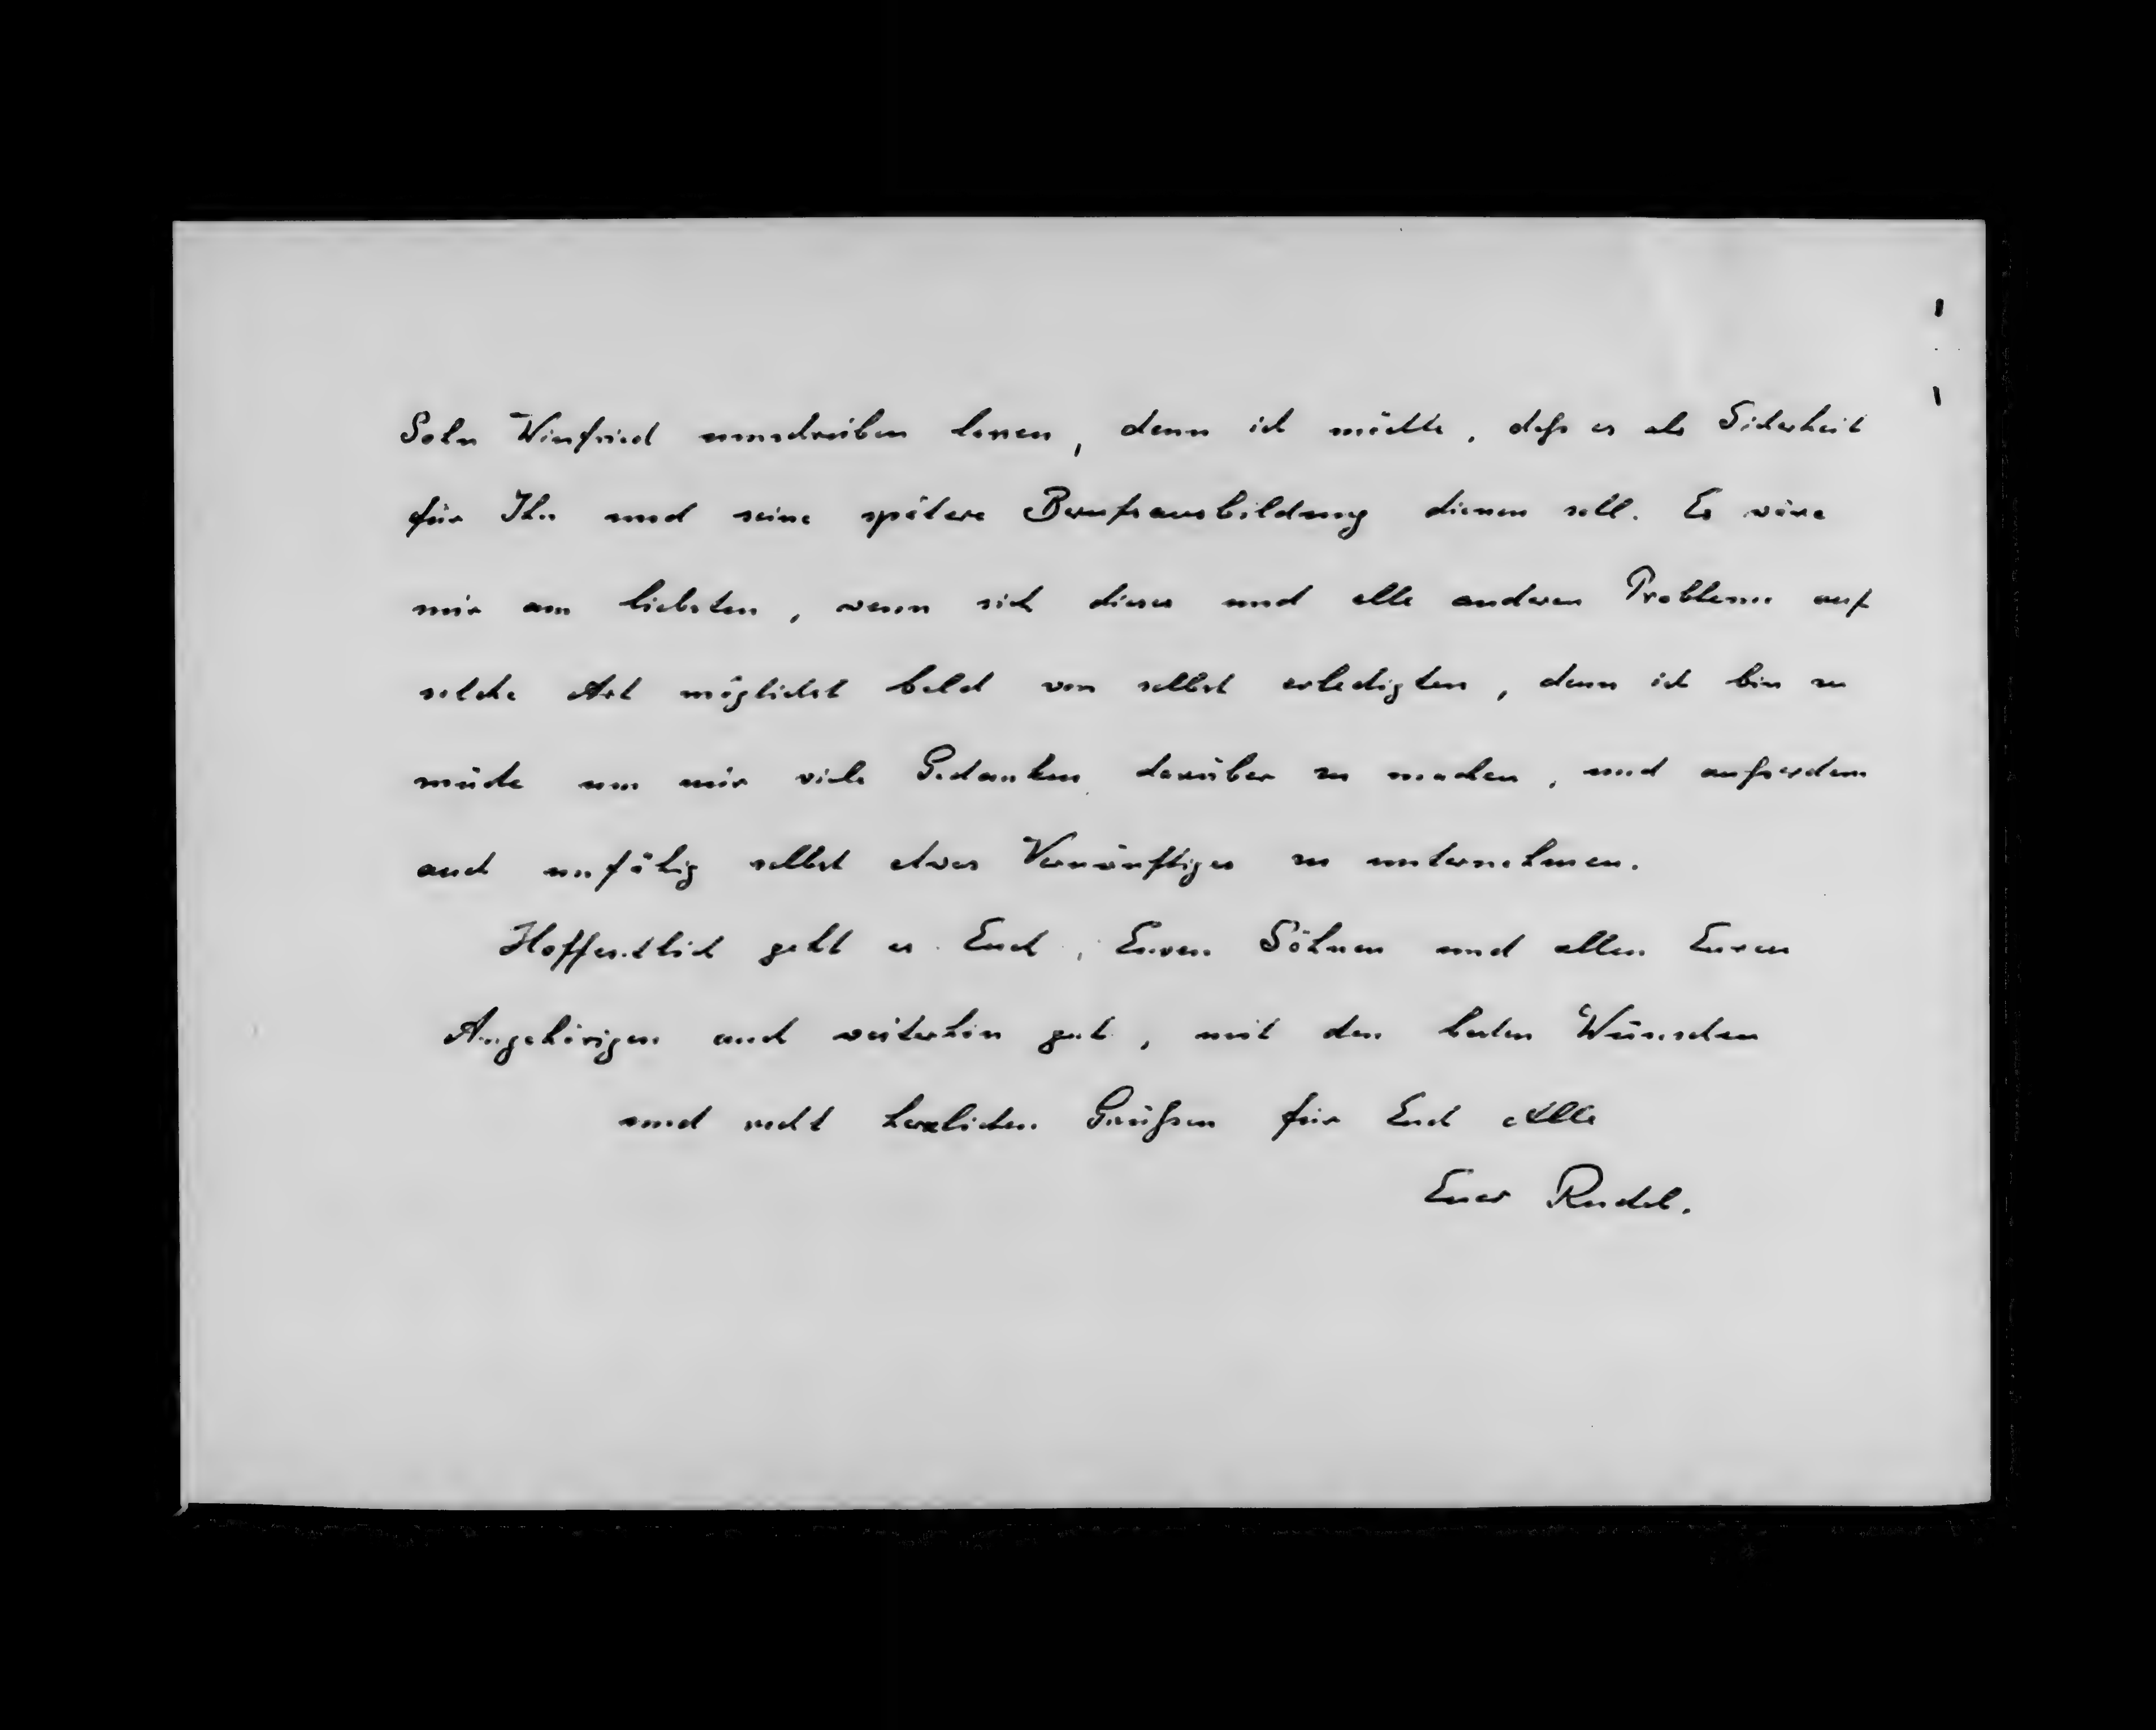 Sohn Winfried umschreiben lassen, denn ich möchte, daß es als Sicherheit
für Ihn und seine spätere Berufsausbildung dienen soll. Es wäre
mir am liebsten, wenn sich dieses und alle anderen Probleme auf
solche Art möglichst bald von selbst erledigten, denn ich bin zu
müde um mir viele Gedanken darüber zu machen, und außerdem
auch unfähig selbst etwas Vernünftiges zu unternehmen.
Hoffentlich geht es Euch, Euren Söhnen und allen Euren
Angehörigen auch weiterhin gut, mit den besten Wünschen
und recht herzlichen Grüßen für Euch Alle
Euer Rudel.